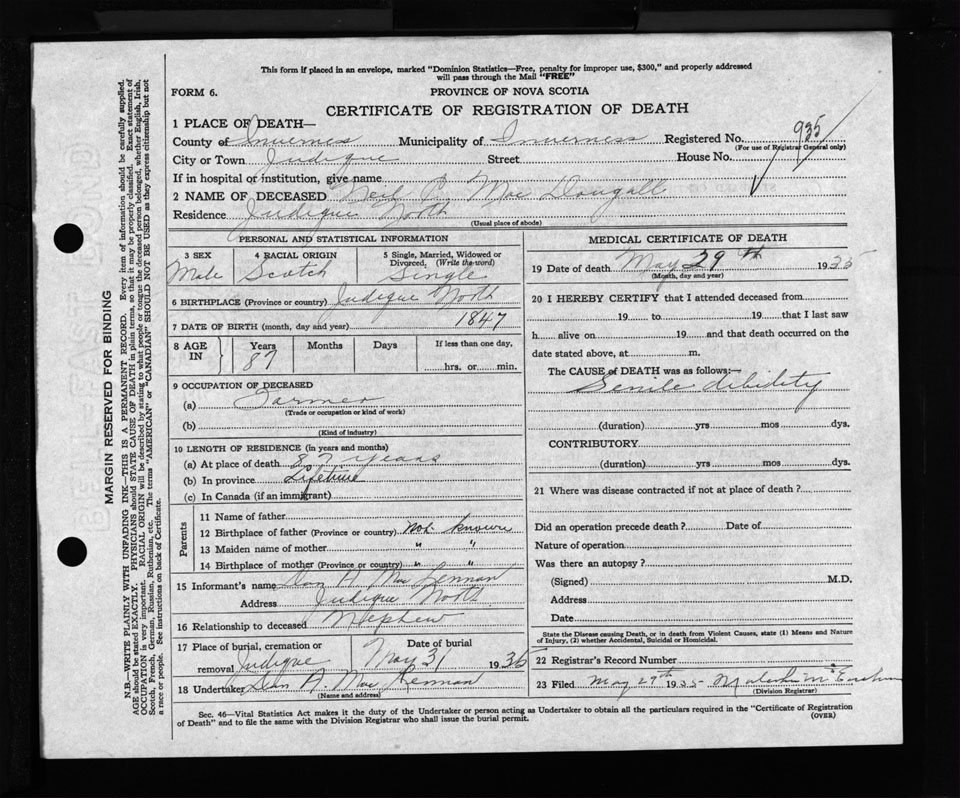 This form if placed in an envelope, marked "Dominion Statistics—Free, penalty for improper use, $300," and properly addressed
will pass through the Mail "FREE"
FORM 6. PROVINCE OF NOVA SCOTIA
CERTIFICATE OF REGISTRATION OF DEATH
1 PLACE OF DEATH—
County of Inverness Municipality of Inverness Registered No. 935
(For use of Registrar General only)
City or Town Judique Street House No.
If in hospital or institution, give name
2 NAME OF DECEASED Neil P. Mac Dougall
Residence Judique North
(Usual place of abode)
PERSONAL AND STATISTICAL INFORMATION
3 SEX 4 RACIAL ORIGIN 5 Single, Married, Widowed or
Divorced, (Write the word)
Male Scotch Single
6 BIRTHPLACE (Province or country) Judique North
7 DATE OF BIRTH (month, day and year) 1847
8 AGE IN Years Months Days If less than one day,
87 hrs. or min.
9 OCCUPATION OF DECEASED
(a) Farmer
(Trade or occupation or kind of work)
(b)
(Kind of industry)
10 LENGTH OF RESIDENCE (in years and months)
(a) At place of death 87 years
(b) In province Lifetime
(c) In Canada (if an immigrant)
Parents
11 Name of father
12 Birthplace of father (Province or country) Not known
13 Maiden name of mother " "
14 Birthplace of mother (Province or country) " "
15 Informant's name Dan A. Mac Lennan
Address Judique North
16 Relationship to deceased Nephew
17 Place of burial, cremation or Date of burial
removal Judique May 31 1935
18 Undertaker A. Mac Lennan
(Name and address)
MEDICAL CERTIFICATE OF DEATH
19 Date of death May 29th 1935
(Month, day and year)
20 I HEREBY CERTIFY that I attended deceased from
19 to 19 that I last saw
h alive on 19 and that death occurred on the
date stated above, at m.
The CAUSE of DEATH was as follows:—
Senile debility
(duration) yrs mos dys.
CONTRIBUTORY
(duration) yrs mos dys.
21 Where was disease contracted if not at place of death?
Did an operation precede death? Date of
Nature of operation
Was there an autopsy?
(Signed) M.D.
Address
Date
State the Disease causing Death, or in death from Violent Causes, state (1) Means and Nature
of Injury, (2) whether Accidental, Suicidal or Homicidal.
22 Registrar's Record Number
23 Filed May 29th 1935 M
(Division Registrar)
Sec. 46—Vital Statistics Act makes it the duty of the Undertaker or person acting as Undertaker to obtain all the particulars required in the "Certificate of Registration
of Death" and to file the same with the Division Registrar who shall issue the burial permit. (OVER)
MARGIN RESERVED FOR BINDING
N.B.—WRITE PLAINLY WITH UNFADING INK—THIS IS A PERMANENT RECORD. Every item of information should be carefully supplied.
AGE should be stated EXACTLY. PHYSICIANS should STATE CAUSE OF DEATH in plain terms, so that it may be properly classified. Exact statement of
OCCUPATION is very important. RACIAL ORIGIN will be described by stating to what people or tongue the deceased person belonged, whether English, Irish,
Scotch, French, German, Russian, Ruthenian, etc. The terms "AMERICAN" or "CANADIAN" SHOULD NOT BE USED as they express citizenship but not
a race or people. See instructions on back of Certificate.